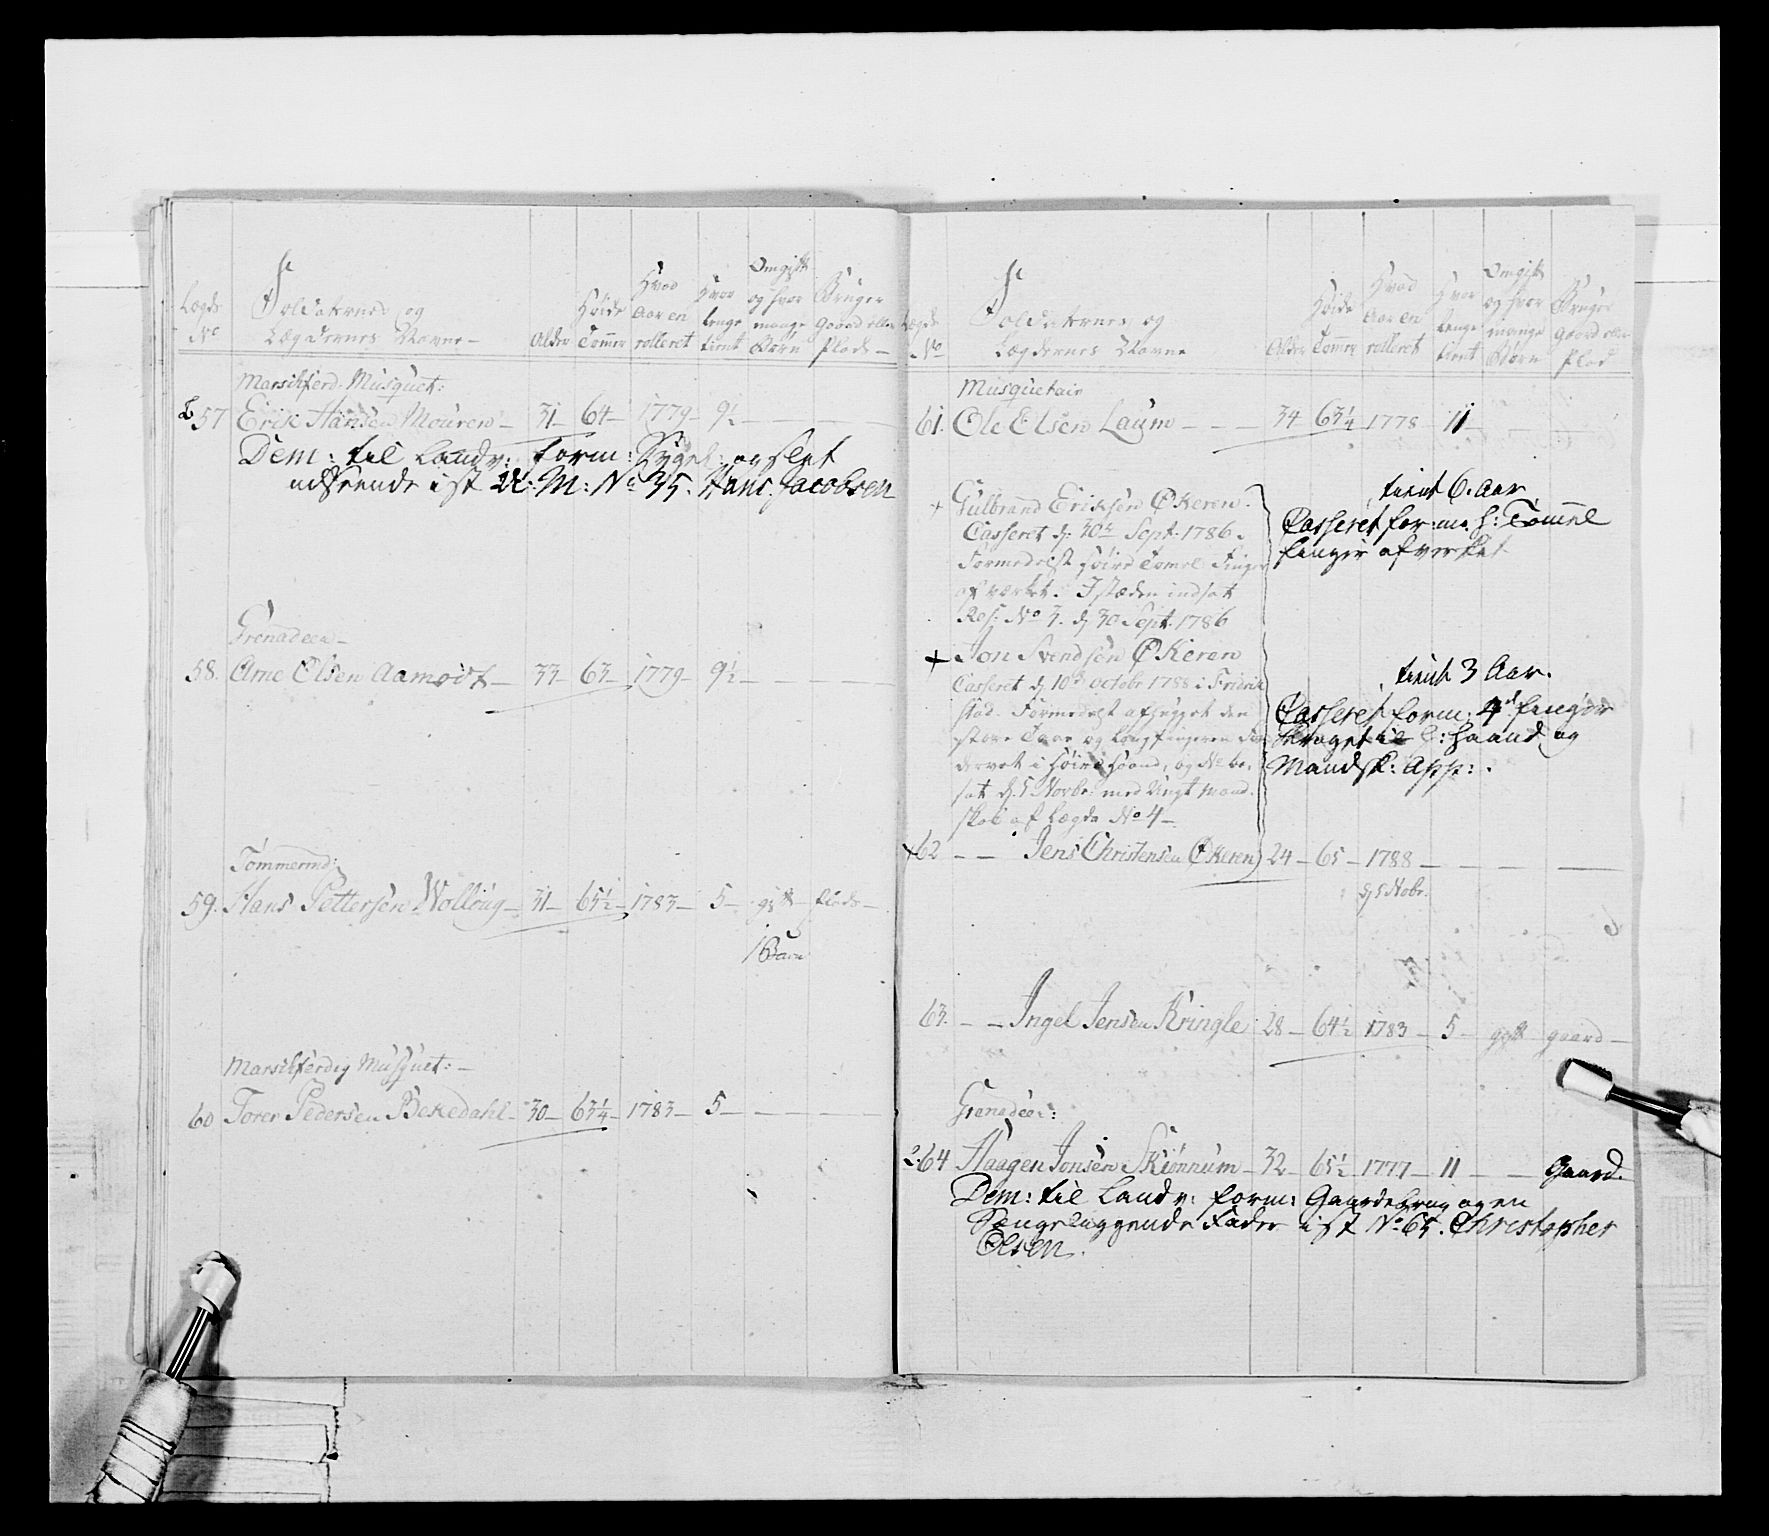 Lægds No
Soldaternes og Lægdernes Navne
Alder
Høide Tommer
Hvad Aar en rolleret
Hvor lenge tient
Omgift og hvor mange Børn
Bruger Gaard eller Plads
Marschferd. Musquet:
57 Erik Hansen Mouren 31 64 1779 9½
Dem: til Landv: form: Sygel: og slet
udseende i st U: M: No 35. Hans Jacobsen
Grenadeer
58. Arne Olsen Aamodt 33 63 1779 9½
Tømmermd:
59. Hans Pettersen Wollöug 31 65½ 1783 5 gift Plads
1 Barn
Marschferdig Musquet:
60 Torer Pedersen Bekedahl 30 63¼ 1783 5
Lægds No
Soldaternes og Lægdernes Navne
Alder
Høide Tommer
Hvad Aar en rolleret
Hvor lenge tient
Omgift og hvor mange Børn
Bruger Gaard eller Plad
Musquetair
61. Ole Elsen Laum 34 63¼ 1778 11
+ Gulbrand Eriksen Økeren.
Casseret d: 30te Sept. 1786.
Formedelst høire Tomel Finger
af verket. I stæden indsat
Res: No 3. d 30 Sept. 1786
tient 6. Aar
Casseret for: m. h: Tommel
finger afverket
+ Jon Svendsen Økeren
Casseret d 10de Octobr 1788 i Fridrik
stad. Formedelst afhugget den
store Taae og Langfingeren
dervet i høire Haand, og No be-
sat d. 5 Novbr: med Ungt Mand-
skab af Lægde No 4
tient 3 Aar.
Casseret form: 4de finger
Kroget i h: Haand og
Mandsk: App:.
+62 Jens Christensen Økeren 24 65 1788
d 5 Nobr.
63. Ingel Jensen Kringle 28 64½ 1783 5 gift gaard
Grenadeer:
2.64 Haagen Jonsen Skiønnum 32 65½ 1777 11 Gaard.
Dem: til Landv: form: Gaardebrug og en
Sængeliggende Fader i st No 65. Christopher
Olsen.